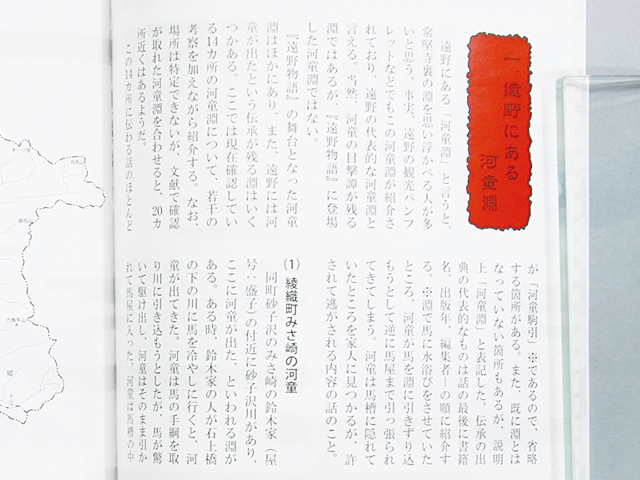 一 遠野にある
河童淵
遠野にある「河童淵」と言うと、
常堅寺裏の淵を思い浮かべる人が多
いと思う。事実、遠野の観光パンフ
レットなどでもこの河童淵が紹介さ
れており、遠野の代表的な河童淵と
言える。当然、河童の目撃譚が残る
淵ではあるが、『遠野物語』に登場
した河童淵ではない。
『遠野物語』の舞台となった河童
淵はほかにあり、また、遠野には河
童が出たという伝承が残る淵はいく
つかある。ここでは現在確認してい
る14カ所の河童淵について、若干の
考察を加えながら紹介する。なお、
場所は特定できないが、文献で確認
が取れた河童淵を合わせると、20カ
所近くはあるようだ。
この14カ所に伝わる話のほとんど
が「河童駒引」※であるので、省略
する箇所がある。また、既に淵とは
なっていない箇所もあるが、説明
上「河童淵」と表記した。伝承の出
典の代表的なものは話の最後に書籍
名、出版年、編集者―の順に紹介す
る。※淵で馬に水浴びをさせていた
ところ、河童が馬を淵に引きずり込
もうとして逆に馬屋まで引っ張られ
てきてしまう。河童は馬槽に隠れて
いたところを家人に見つかるが、許
されて逃がされる内容の話のこと。
(1) 綾織町みさ崎の河童
同町砂子沢のみさ崎の鈴木家（屋
号：盛子）の付近に砂子沢川があり、
ここに河童が出た、といわれる淵が
ある。ある時、鈴木家の人が石上橋
の下の川に馬を冷やしに行くと、河
童が出てきた。河童は馬の手綱を取
り川に引き込もうとしたが、馬が驚
いて駆け出し、河童はそのまま引か
れて馬屋に入った。河童は馬槽の中